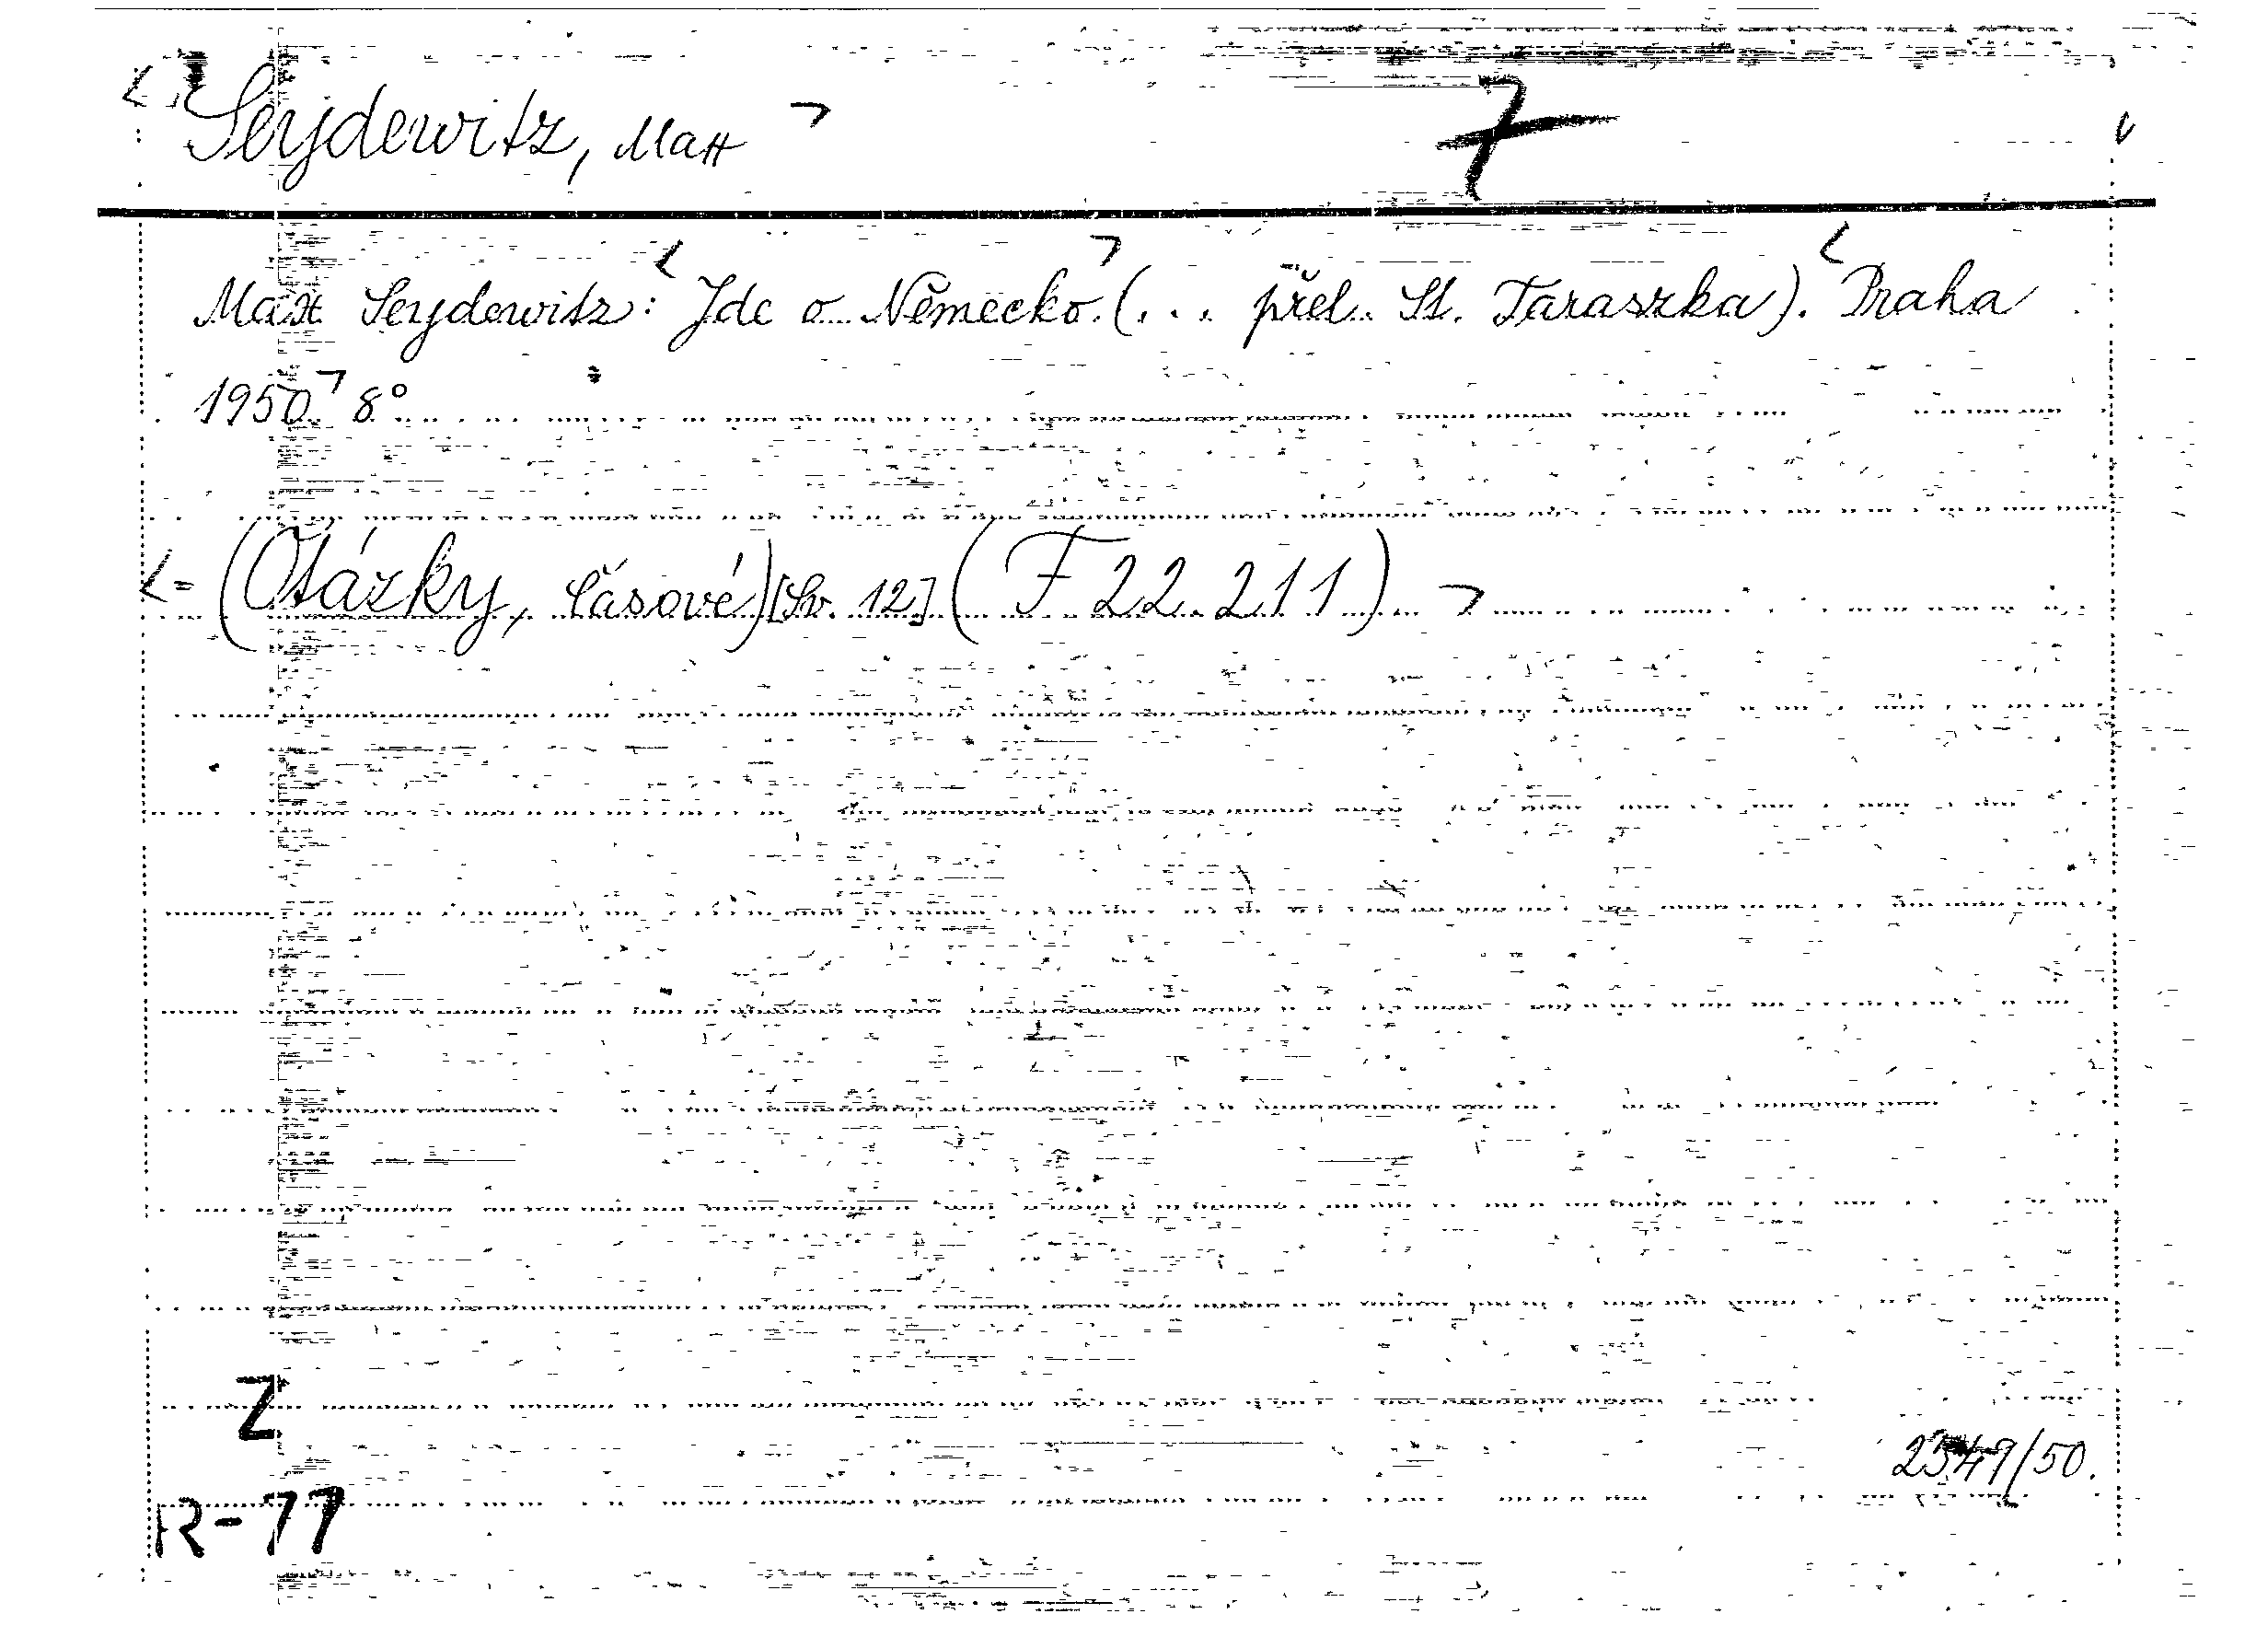 Seydewitz, Max 7
Max Seydewitz: Jde o Německo. (... přel. St. Taraszka). Praha
1950. 8°
= (Otázky, časové) [Sv. 12] (F 22.211)
Z
2349/50.
R-77